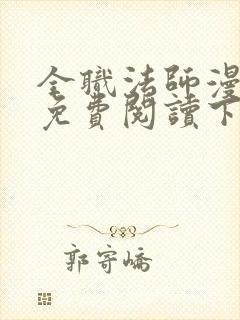 全職法師漫
免費閱讀下
郭寄嶠